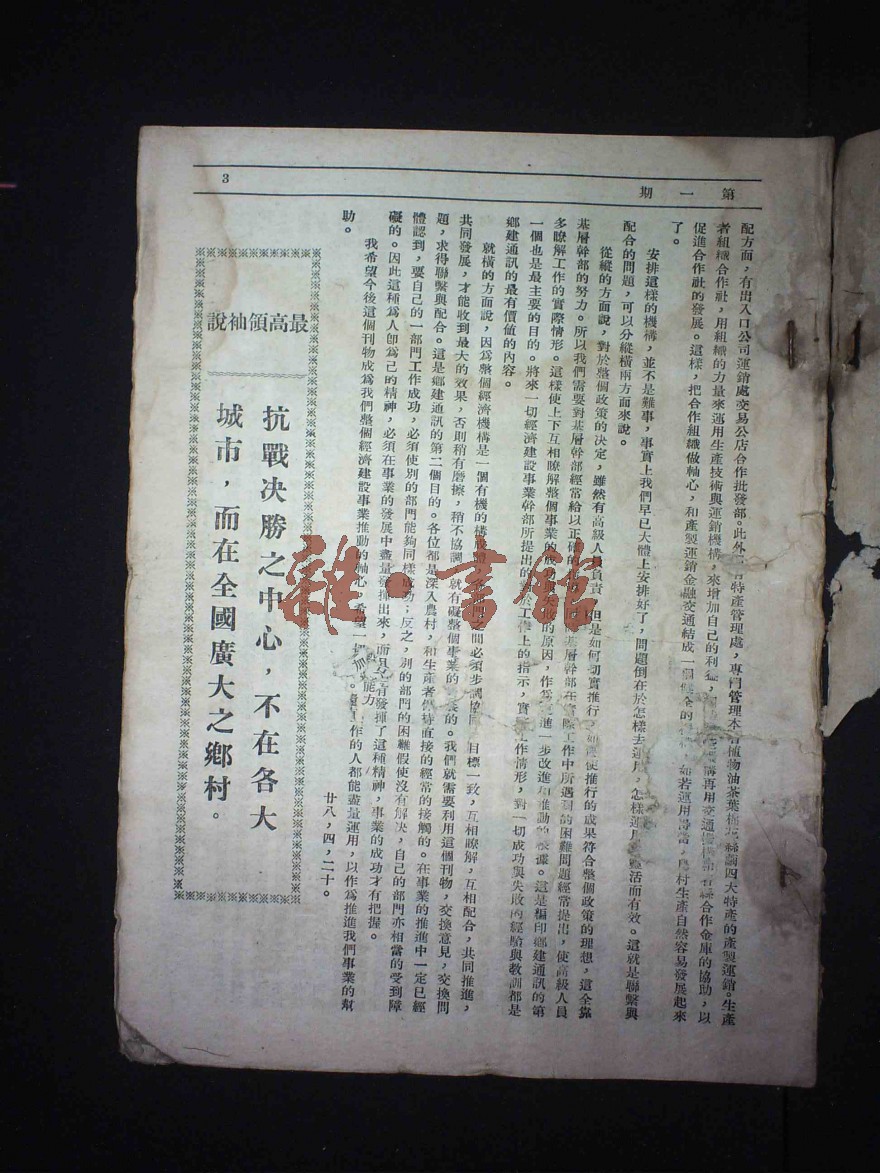 第一期
3
配方面，有出入口公司運銷處交易公店合作批發部。此外 特產管理處，專門管理本省植物油茶葉棉花絲繭四大特產的產製運銷。生產
者組織合作社，用組織的力量來運用生產技術與運銷機構，來增加自己的利益， 再用交通 合作金庫的協助，以
促進合作社的發展。這樣，把合作組織做軸心，和產製運銷金融交通結成一個健全的 如若運用得當，農村生產自然容易發展起來
了。
安排這樣的機構，並不是難事，事實上我們早已大體上安排好了，問題倒在於怎樣去運用，怎樣運用 靈活而有效。這就是聯繫與
配合的問題，可以分縱橫兩方面來說。
從縱的方面說，對於整個政策的決定，雖然有高級人員負責，但是如何切實推行， 使推行的成果符合整個政策的理想，這全靠
基層幹部的努力。所以我們需要對基層幹部經常給以正確的 基層幹部在實際工作中所遇到的困難問題經常提出，使高級人員
多瞭解工作的實際情形。這樣使上下互相瞭解整個事業的成功 的原因，作為 進一步改進和推動的根據。這是編印鄉建通訊的第
一個也是最主要的目的。將來一切經濟建設事業幹部所提出的 於工作上的指示，實 工作情形，對一切成功與失敗的經驗與教訓都是
鄉建通訊的最有價値的內容。
就橫的方面說，因為整個經濟機構是一個有機的構成體， 部門之間必須步調協同，目標一致，互相瞭解，互相配合，共同推進，
共同發展，才能收到最大的效果，否則稍有磨擦，稍不協調，就有礙整個事業的 展的。我們就需要利用這個刊物，交換意見，交換問
題，求得聯繫與配合。這是鄉建通訊的第二個目的。各位都是深入農村，和生產者保持直接的經常的接觸的。在事業的推進中一定已經
體認到，要自己的一部門工作成功，必須使別的部門能夠同樣成功；反之，別的部門的困難假使沒有解決，自己的部門亦相當的受到障
礙的。因此這種為人卽為己的精神，必須在事業的發展中盡量發揮出來，而且 有發揮了這種精神，事業的成功才有把握。
我希望今後這個刊物成為我們整個經濟建設事業推動的軸心，希望一切 能力 工作的人都能盡量運用，以作為推進我們事業的幫
助。
廿八，四，二十。
最高領袖說
抗戰決勝之中心，不在各大
城市，而在全國廣大之鄉村。
雜·書館